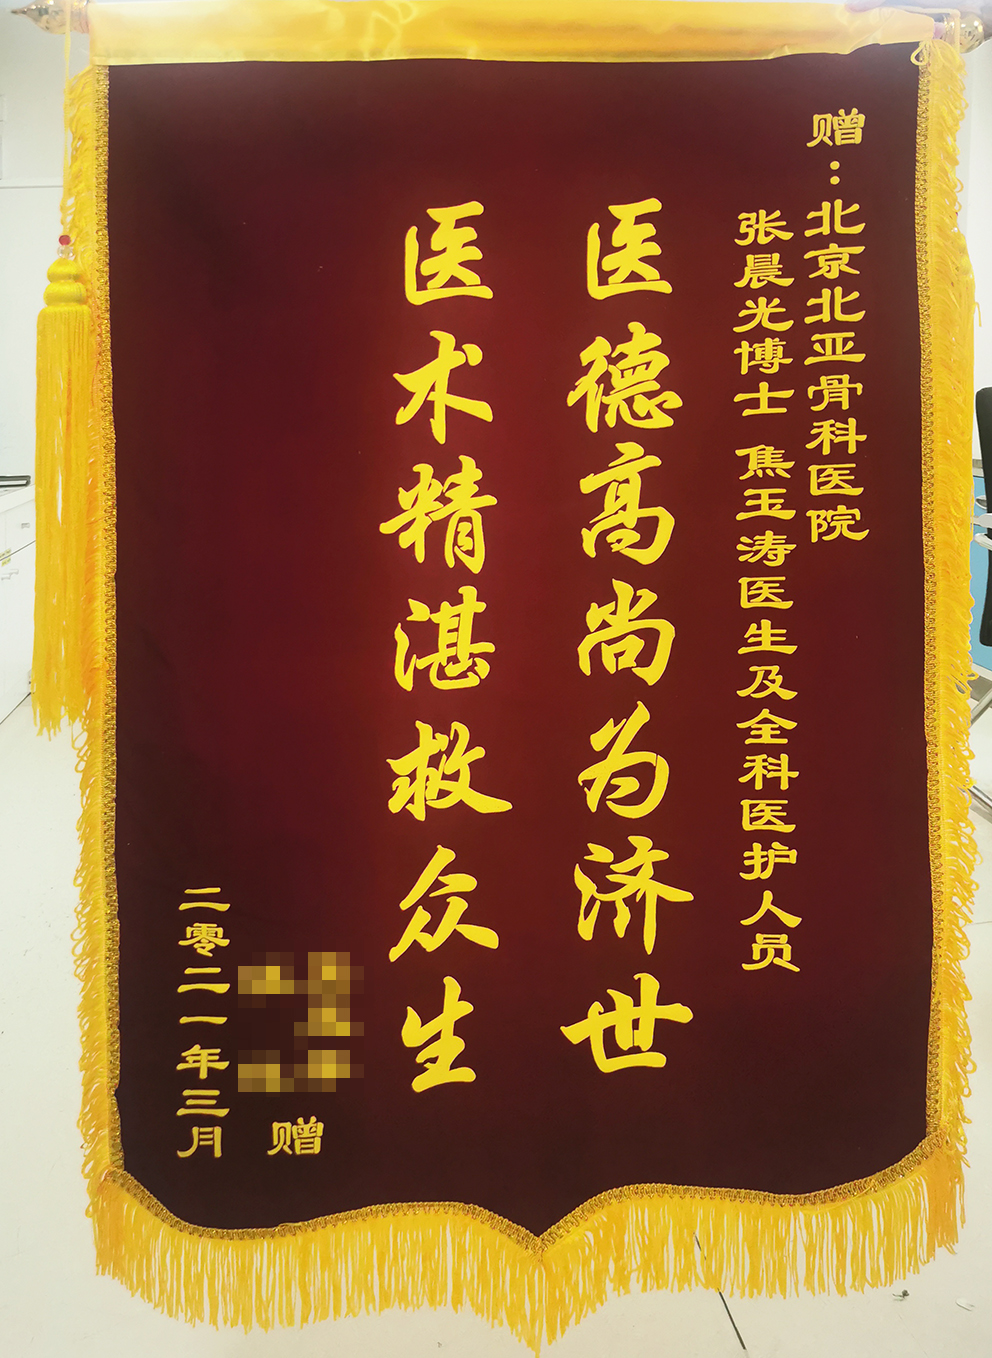 赠：北京北亚骨科医院
张晨光博士 焦玉涛医生及全科医护人员
医德高尚为济世
医术精湛救众生
赠
二零二一年三月